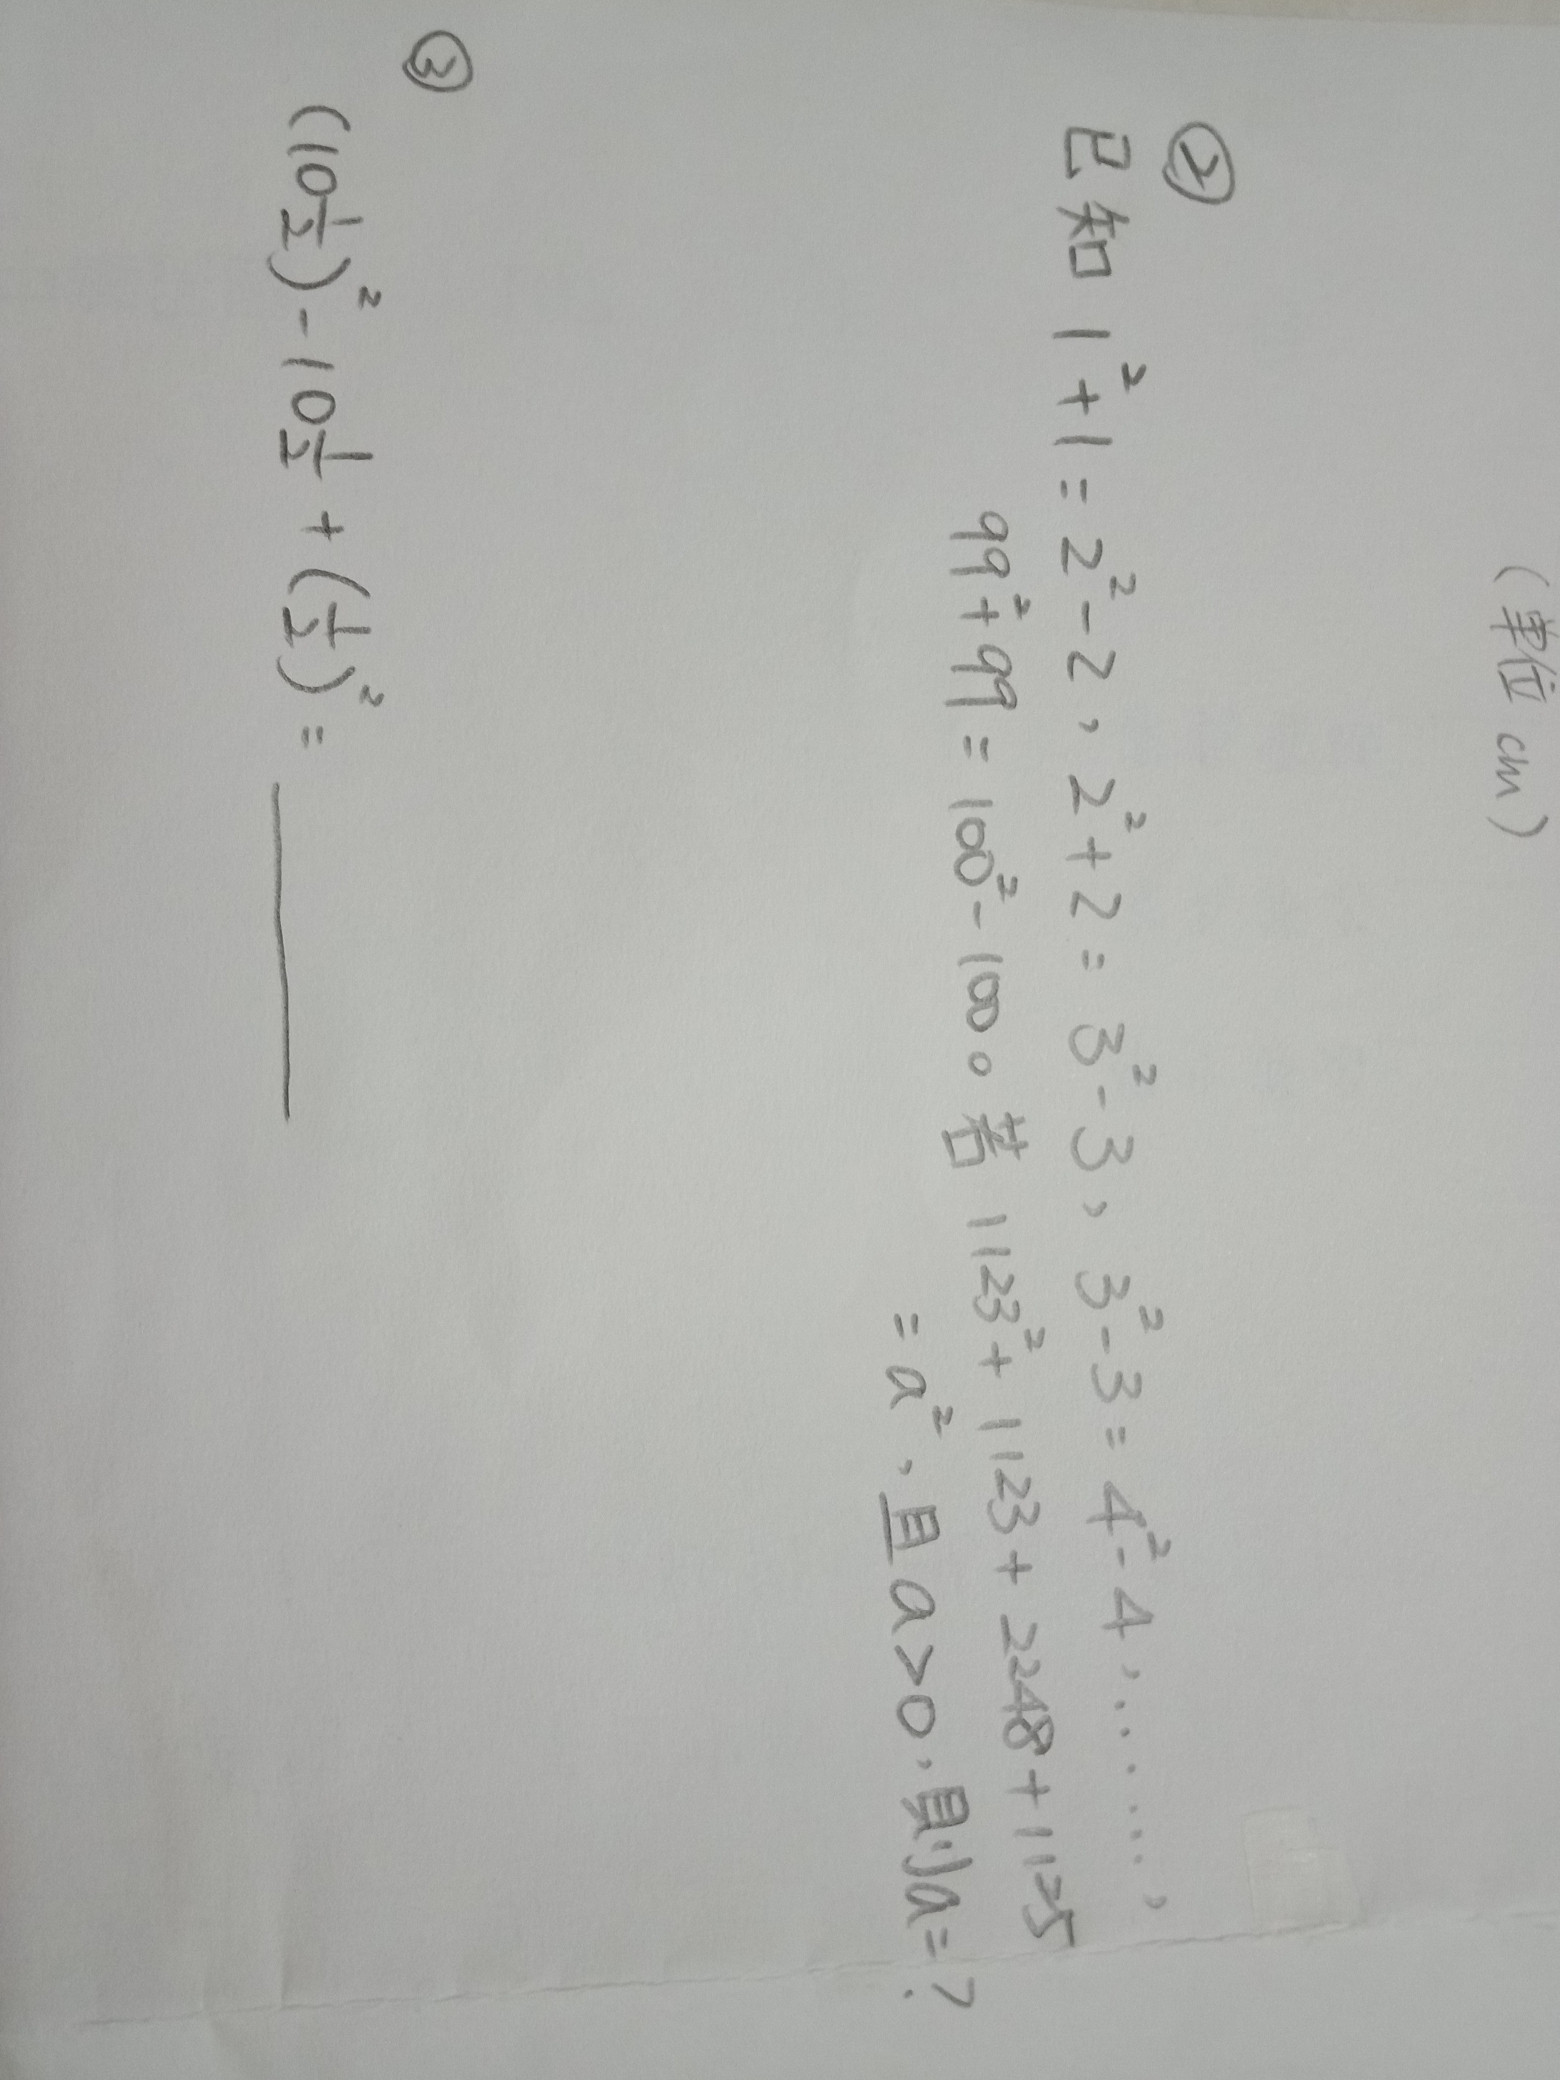 (單位cm)
②
已知 1²+1=2²-2，2²+2=3²-3，3²-3=4²-4，……，
99²+99=100²-100。若 1123²+1123+2248+1125
=a²，且a>0，則a=?
③
(10½)²-10½+(½)²=